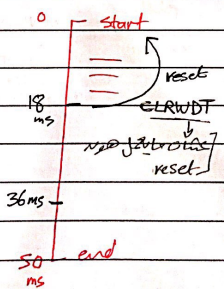 0 start
reset
18 ms
CLRWDT
reset
36ms
50 ms end